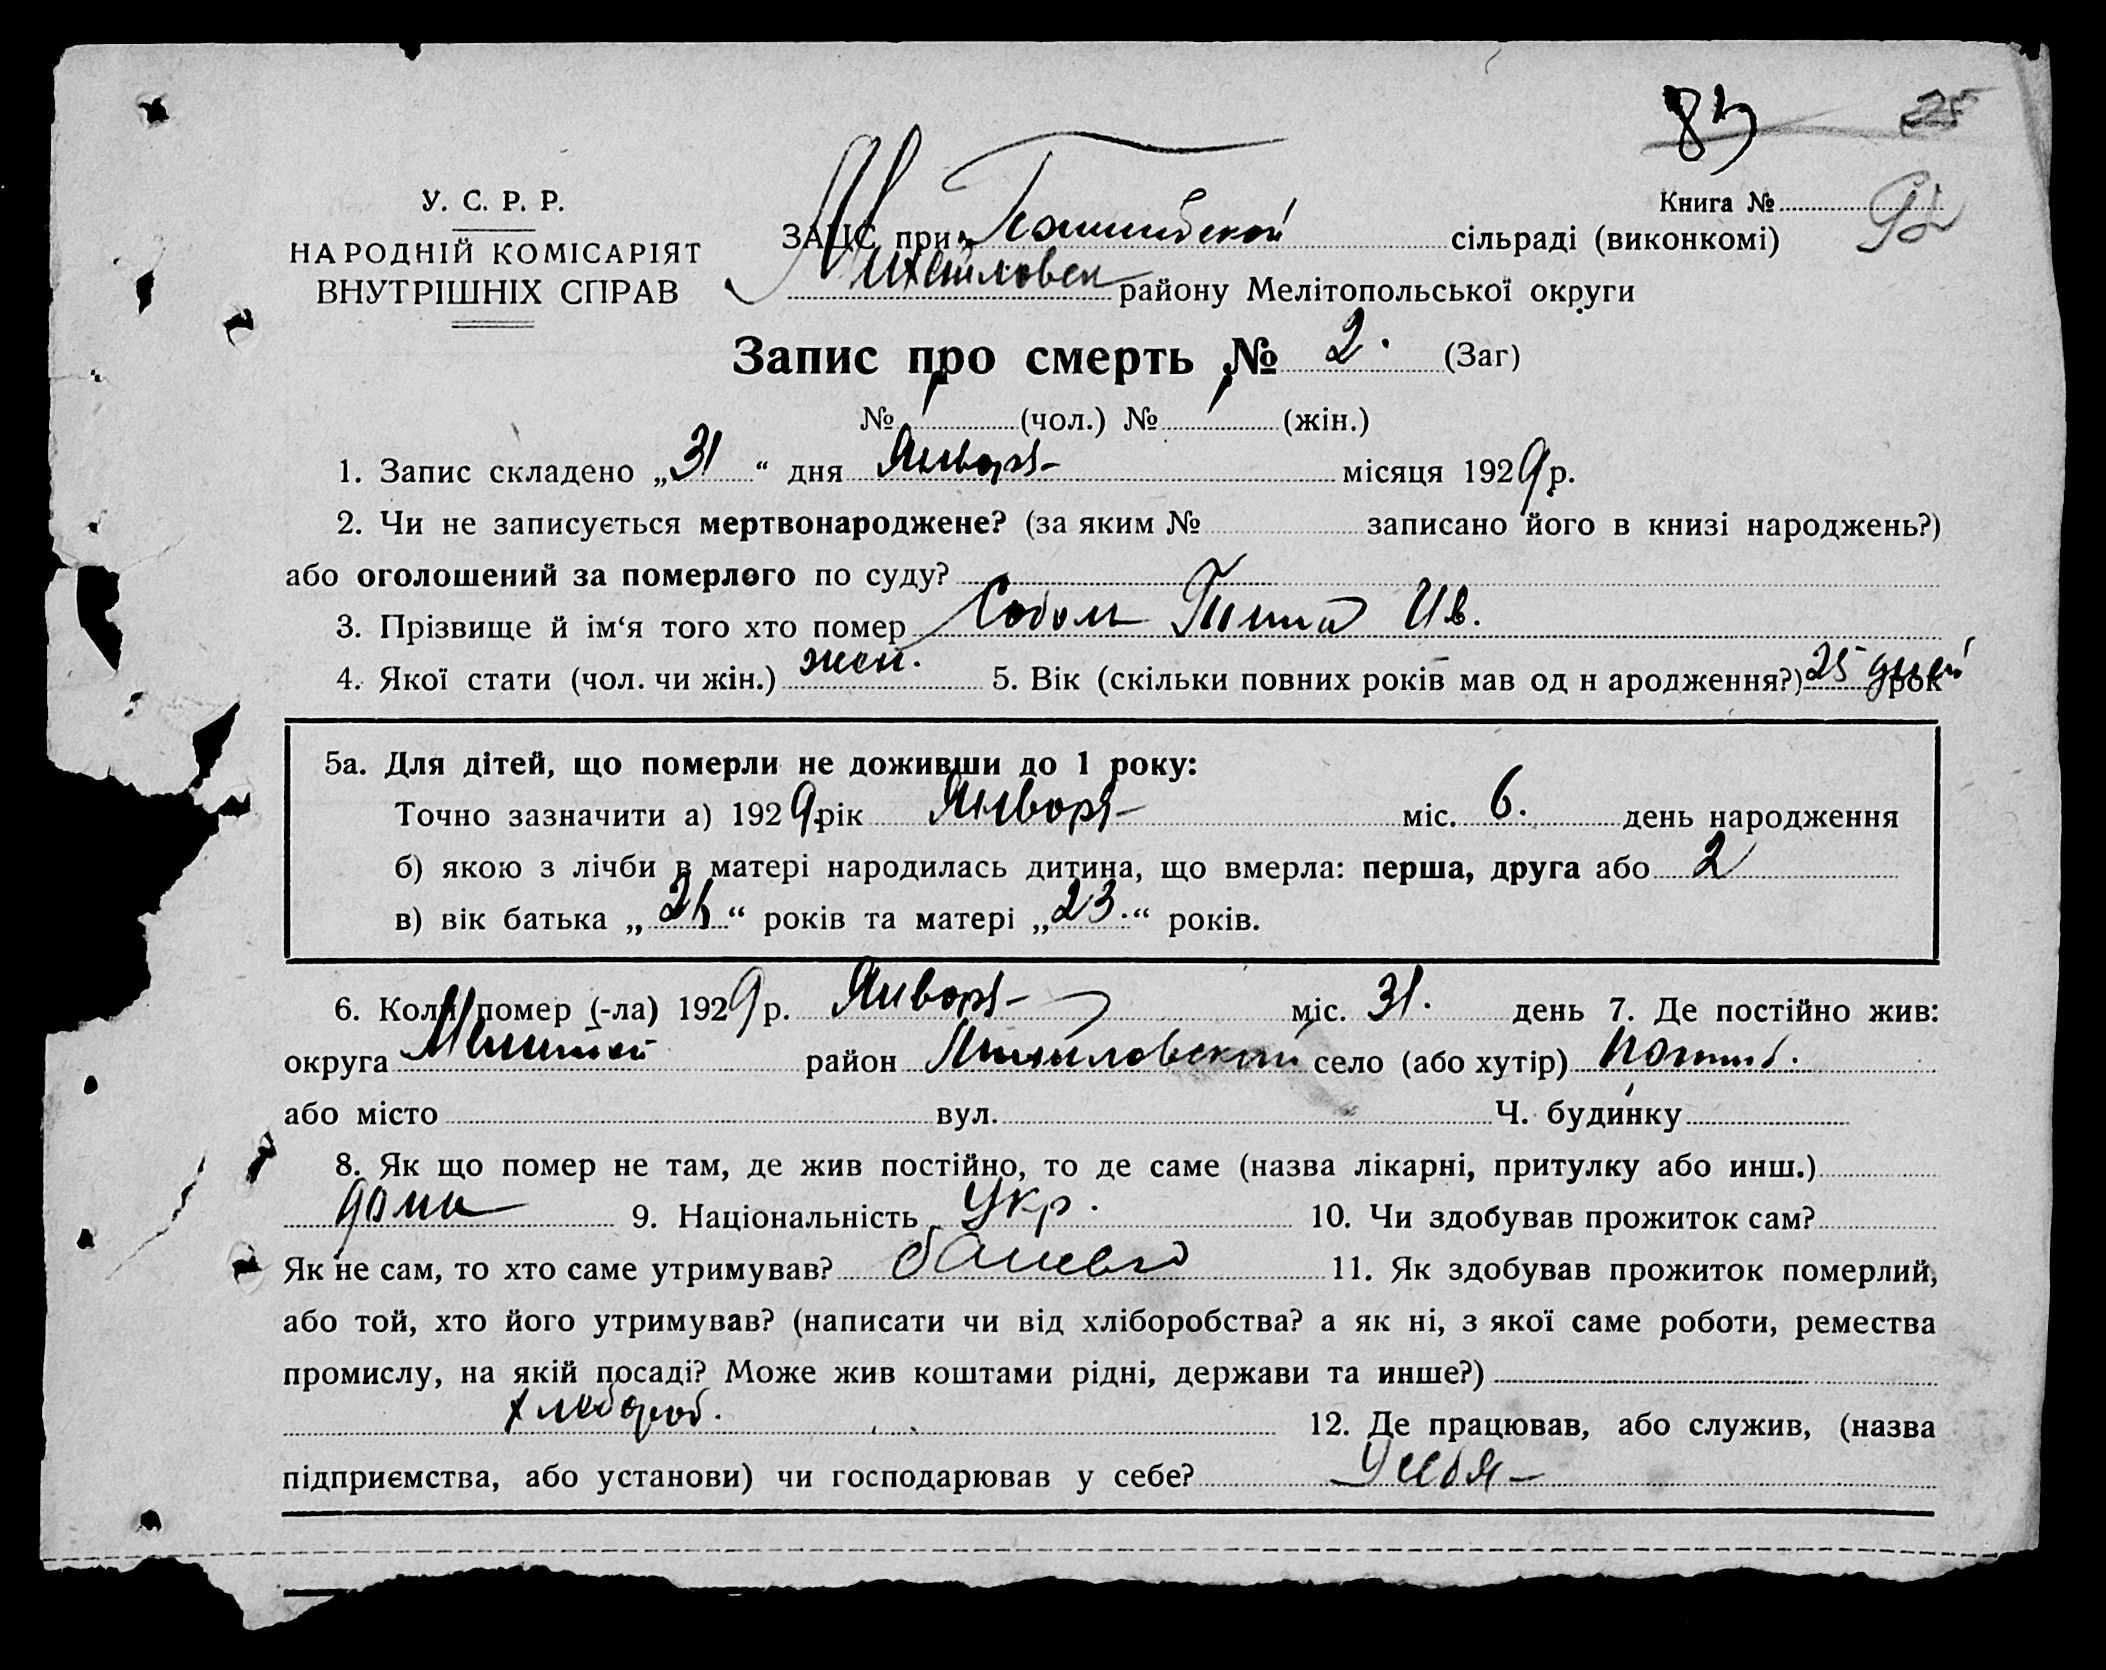 83 25
У. С. Р. Р.
НАРОДНІЙ КОМІСАРІЯТ
ВНУТРІШНІХ СПРАВ
Книга №
ЗАЦС при сільраді (виконкомі)
Михайловск району Мелітопольської округи
Запис про смерть № 2. (Заг)
№ (чол.) № 1 (жін.)
1. Запис складено „31“ дня Января місяця 1929 р.
2. Чи не записується мертвонароджене? (за яким № записано його в книзі народжень?)
або оголошений за померлого по суду?
3. Прізвище й ім‘я того хто помер Соболь Ив.
4. Якої стати (чол. чи жін.) жен. 5. Вік (скільки повних років мав од н ародження?) 25 дней рок
5а. Для дітей, що померли не доживши до 1 року:
Точно зазначити а) 1929 рік Января міс. 6. день народження
б) якою з лічби в матері народилась дитина, що вмерла: перша, друга або 2
в) вік батька „ “ років та матері „23.“ років.
6. Коли помер (-ла) 1929 р. Января міс. 31. день 7. Де постійно жив:
округа район Михайловский село (або хутір)
або місто вул. Ч. будинку
8. Як що помер не там, де жив постійно, то де саме (назва лікарні, притулку або инш.)
дома 9. Національність Укр. 10. Чи здобував прожиток сам?
Як не сам, то хто саме утримував? 11. Як здобував прожиток померлий,
або той, хто його утримував? (написати чи від хліборобства? а як ні, з якої саме роботи, ремества
промислу, на якій посаді? Може жив коштами рідні, держави та инше?)
хлебороб. 12. Де працював, або служив, (назва
підприємства, або установи) чи господарював у себе? У себя